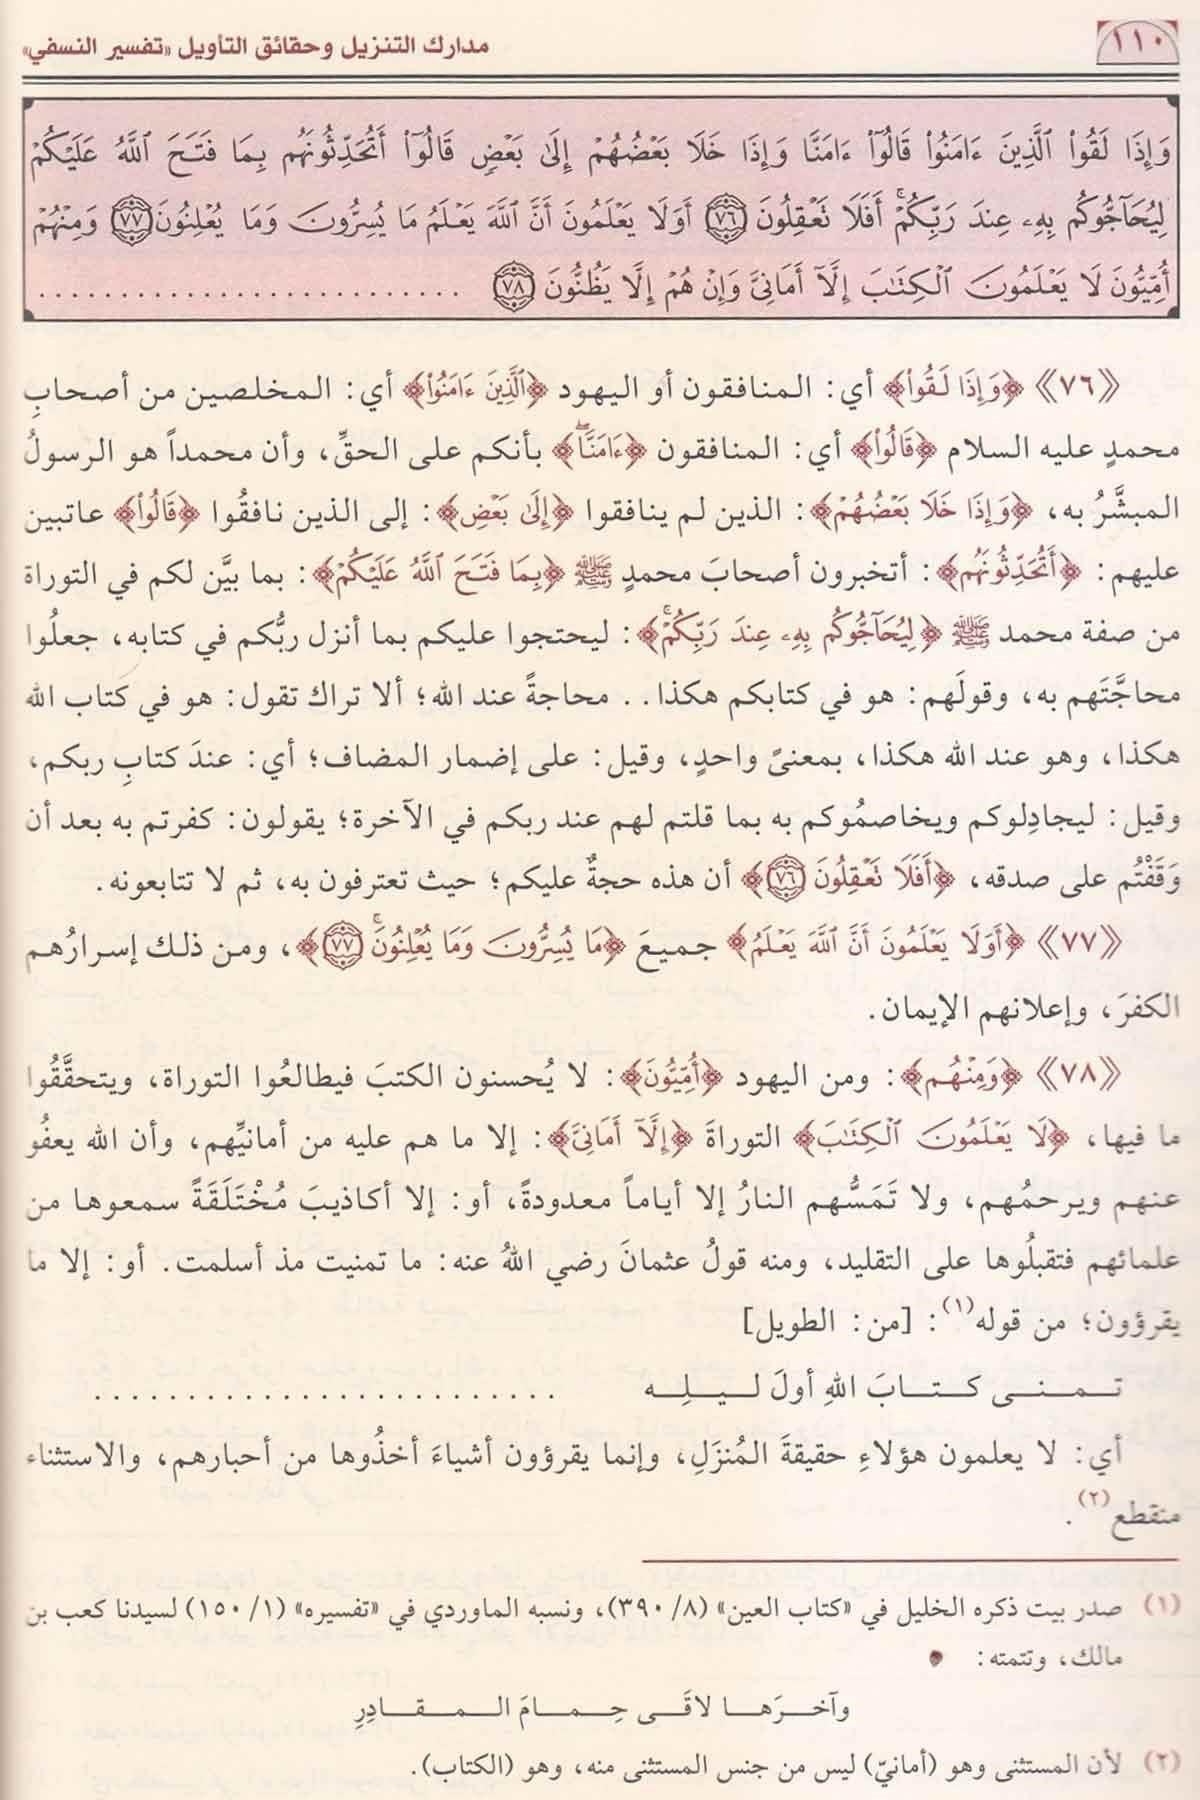 ١١٠
مدارك التنزيل وحقائق التأويل «تفسير النسفي»
وَإِذَا لَقُوا۟ ٱلَّذِينَ ءَامَنُوا۟ قَالُوٓا۟ ءَامَنَّا وَإِذَا خَلَا بَعْضُهُمْ إِلَىٰ بَعْضٍ قَالُوٓا۟ أَتُحَدِّثُونَهُم بِمَا فَتَحَ ٱللَّهُ عَلَيْكُمْ
لِيُحَآجُّوكُم بِهِۦ عِندَ رَبِّكُمْ ۚ أَفَلَا تَعْقِلُونَ ٧٦ أَوَلَا يَعْلَمُونَ أَنَّ ٱللَّهَ يَعْلَمُ مَا يُسِرُّونَ وَمَا يُعْلِنُونَ ٧٧ وَمِنْهُمْ
أُمِّيُّونَ لَا يَعْلَمُونَ ٱلْكِتَـٰبَ إِلَّآ أَمَانِىَّ وَإِنْ هُمْ إِلَّا يَظُنُّونَ ٧٨ ..............................
《٧٦》 ﴿وَإِذَا لَقُوا۟﴾ أي: المنافقون أو اليهود ﴿ٱلَّذِينَ ءَامَنُوا۟﴾ أي: المخلصين من أصحابِ
محمدٍ عليه السلام ﴿قَالُوٓا۟﴾ أي: المنافقون ﴿ءَامَنَّا﴾ بأنكم على الحقِّ، وأن محمداً هو الرسولُ
المبشَّرُ به، ﴿وَإِذَا خَلَا بَعْضُهُمْ﴾: الذين لم ينافقوا ﴿إِلَىٰ بَعْضٍ﴾: إلى الذين نافقُوا ﴿قَالُوٓا۟﴾ عاتبين
عليهم: ﴿أَتُحَدِّثُونَهُم﴾: أتخبرون أصحابَ محمدٍ ﷺ ﴿بِمَا فَتَحَ ٱللَّهُ عَلَيْكُمْ﴾: بما بيَّن لكم في التوراة
من صفة محمد ﷺ ﴿لِيُحَآجُّوكُم بِهِۦ عِندَ رَبِّكُمْ ۚ﴾: ليحتجوا عليكم بما أنزل ربُّكم في كتابه، جعلُوا
محاجَّتَهم به، وقولَهم: هو في كتابكم هكذا.. محاجةً عند الله؛ ألا تراك تقول: هو في كتاب الله
هكذا، وهو عند الله هكذا، بمعنىً واحدٍ، وقيل: على إضمار المضاف؛ أي: عندَ كتابِ ربكم،
وقيل: ليجادِلوكم ويخاصمُوكم به بما قلتم لهم عند ربكم في الآخرة؛ يقولون: كفرتم به بعد أن
وَقَفْتُم على صدقه، ﴿أَفَلَا تَعْقِلُونَ ٧٦﴾ أن هذه حجةٌ عليكم؛ حيث تعترفون به، ثم لا تتابعونه.
《٧٧》 ﴿أَوَلَا يَعْلَمُونَ أَنَّ ٱللَّهَ يَعْلَمُ﴾ جميعَ ﴿مَا يُسِرُّونَ وَمَا يُعْلِنُونَ ۚ ٧٧﴾، ومن ذلك إسرارُهم
الكفرَ، وإعلانهم الإيمان.
《٧٨》 ﴿وَمِنْهُم﴾: ومن اليهود ﴿أُمِّيُّونَ﴾: لا يُحسنون الكتبَ فيطالعُوا التوراة، ويتحقَّقُوا
ما فيها، ﴿لَا يَعْلَمُونَ ٱلْكِتَـٰبَ﴾ التوراةَ ﴿إِلَّآ أَمَانِىَّ﴾: إلا ما هم عليه من أمانيِّهم، وأن الله يعفُو
عنهم ويرحمُهم، ولا تَمَسُّهم النارُ إلا أياماً معدودةً، أو: إلا أكاذيبَ مُخْتَلَقَةً سمعوها من
علمائهم فتقبلُوها على التقليد، ومنه قولُ عثمانَ رضي اللهُ عنه: ما تمنيت مذ أسلمت. أو: إلا ما
يقرؤون؛ من قوله(١): [من: الطويل]
تـمـنـى كـتـابَ اللهِ أولَ لـيـلِـه ..............................
أي: لا يعلمون هؤلاءِ حقيقةَ المُنزَلِ، وإنما يقرؤون أشياءَ أخذُوها من أحبارهم، والاستثناء
منقطع(٢).
(١) صدر بيت ذكره الخليل في «كتاب العين» (٨/ ٣٩٠)، ونسبه الماوردي في «تفسيره» (١/ ١٥٠) لسيدنا كعب بن
مالك، وتتمته:
وآخـرَهـا لاقَـى حِـمـامَ الـمـقـادِرِ
(٢) لأن المستثنى وهو (أمانيّ) ليس من جنس المستثنى منه، وهو (الكتاب).